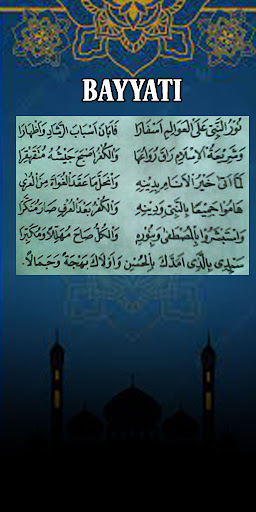 BAYYATI
نُورُ النَّبِيِّ عَلَى الْعَوَالِمِ اَسْفَارَا فَاَبَانَ اَسْبَابَ الرَّشَادِ وَاَظْهَارَا
وَشَرِيْعَةُ الْاِسْلَامِ رَاقَ رُوَاتُهَا وَالْكُفْرُ اَصْبَحَ جَيْشُهُ مُتَقَهْقِرَا
لَمَّا اَتَى خَيْرُ الْاَنَامِ بِدِيْنِهِ وَانْحَلَّ مَا عَقَدَ الْغُوَاةُ مِنَ الْعُرَى
هَامُوْا جَمِيْعًا بِالنَّبِيِّ وَدِيْنِهِ وَالْكُفْرُ بَعْدَ الْعُرْفِ صَارَ مُنَكَّرَا
وَاسْتَبْشَرُوْا بِالْمُصْطَفٰى وَبِنُوْرِهِ وَالْكُلُّ صَاحَ مُهَلِّلًا وَمُكَبِّرَا
سَيِّدِيْ بِالَّذِيْ اَمَدَّكَ بِالْحُسْنِ وَاَوْلَاكَ بَهْجَةً وَجَمَالًا.